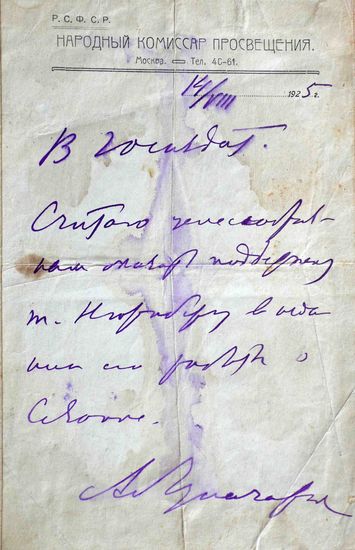 Р. С. Ф. С. Р.
НАРОДНЫЙ КОМИССАР ПРОСВЕЩЕНИЯ.
Москва. Тел. 4С-61.
14/VIII 1925 г.
В Госиздат.
Считаю целесообраз-
ным оказать поддержку
т. в изда-
нии его работы о
А Луначарский